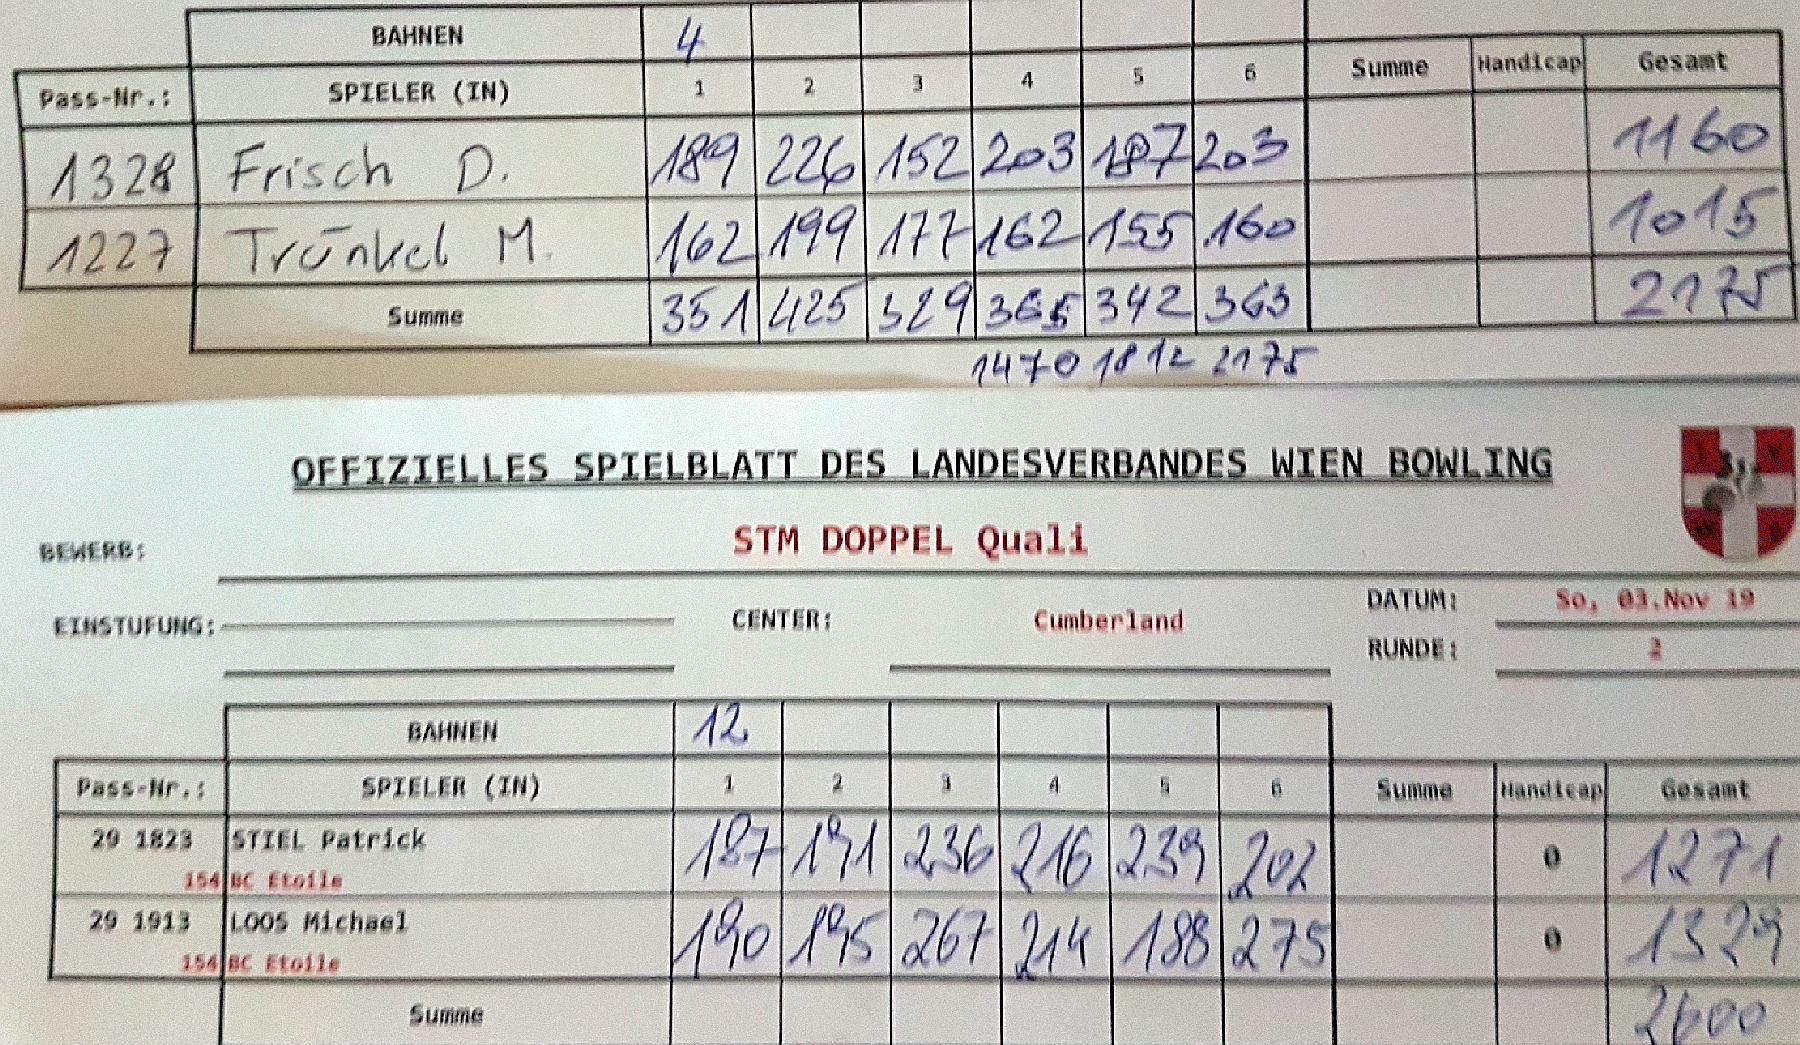 BAHNEN 4
Pass-Nr.: SPIELER (IN) 1 2 3 4 5 6 Summe Handicap Gesamt
1328 Frisch D. 189 226 152 203 187 203 1160
1227 Trünkel M. 162 199 177 162 155 160 1015
Summe 351 425 329 365 342 363 2175
1470 1812 2175
OFFIZIELLES SPIELBLATT DES LANDESVERBANDES WIEN BOWLING
BEWERB: STM DOPPEL Quali
EINSTUFUNG: CENTER: Cumberland DATUM: So, 03.Nov 19
RUNDE: 2
BAHNEN 12
Pass-Nr.: SPIELER (IN) 1 2 3 4 5 6 Summe Handicap Gesamt
29 1823 STIEL Patrick 187 191 236 216 239 202 0 1271
154 BC Etoile
29 1913 LOOS Michael 190 195 267 214 188 275 0 1329
154 BC Etoile
Summe 2600